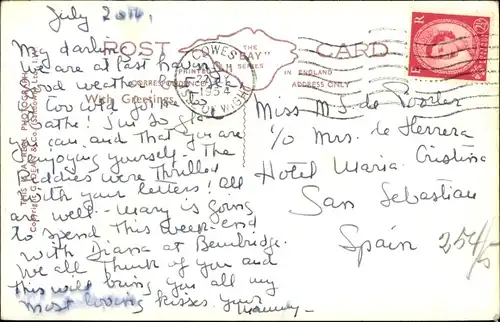 July 20th,
POST CARD
THE "BAY" SERIES
PRINTED IN ENGLAND
CORRESPONDENCE
ADDRESS ONLY
With Greetings
COWES
ISLE OF WIGHT
1954
E R
2½D
THIS IS A REAL PHOTOGRAPH
My darling
We are at last having
good weather, but
too cold to
bathe. I'm so glad
you can. and that you are
enjoying yourself. The
Daddies were thrilled
with your letters! All
are well. Mary is going
to spend this week-end
with Diana at Bembridge.
We all think of you and
this will bring you all my
most loving kisses your
Mummy
Miss M. S. de Poorter
c/o Mrs. de Herrera
Hotel Maria Cristina
San Sebastian
Spain
254/5